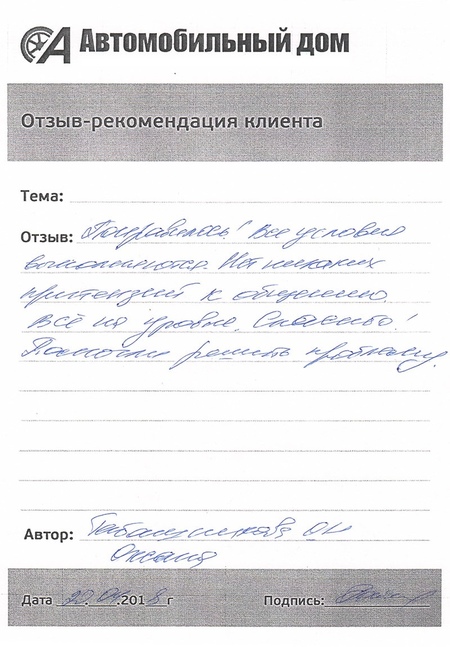 Автомобильный дом
Отзыв-рекомендация клиента
Тема:
Отзыв: Понравилось! Все условия
выполняются. Нет никаких
притензий к общению.
Всё на уровне. Спасибо!
Помогли решить проблему.
Автор:
Оксана
Дата 20.04.2018 г Подпись: